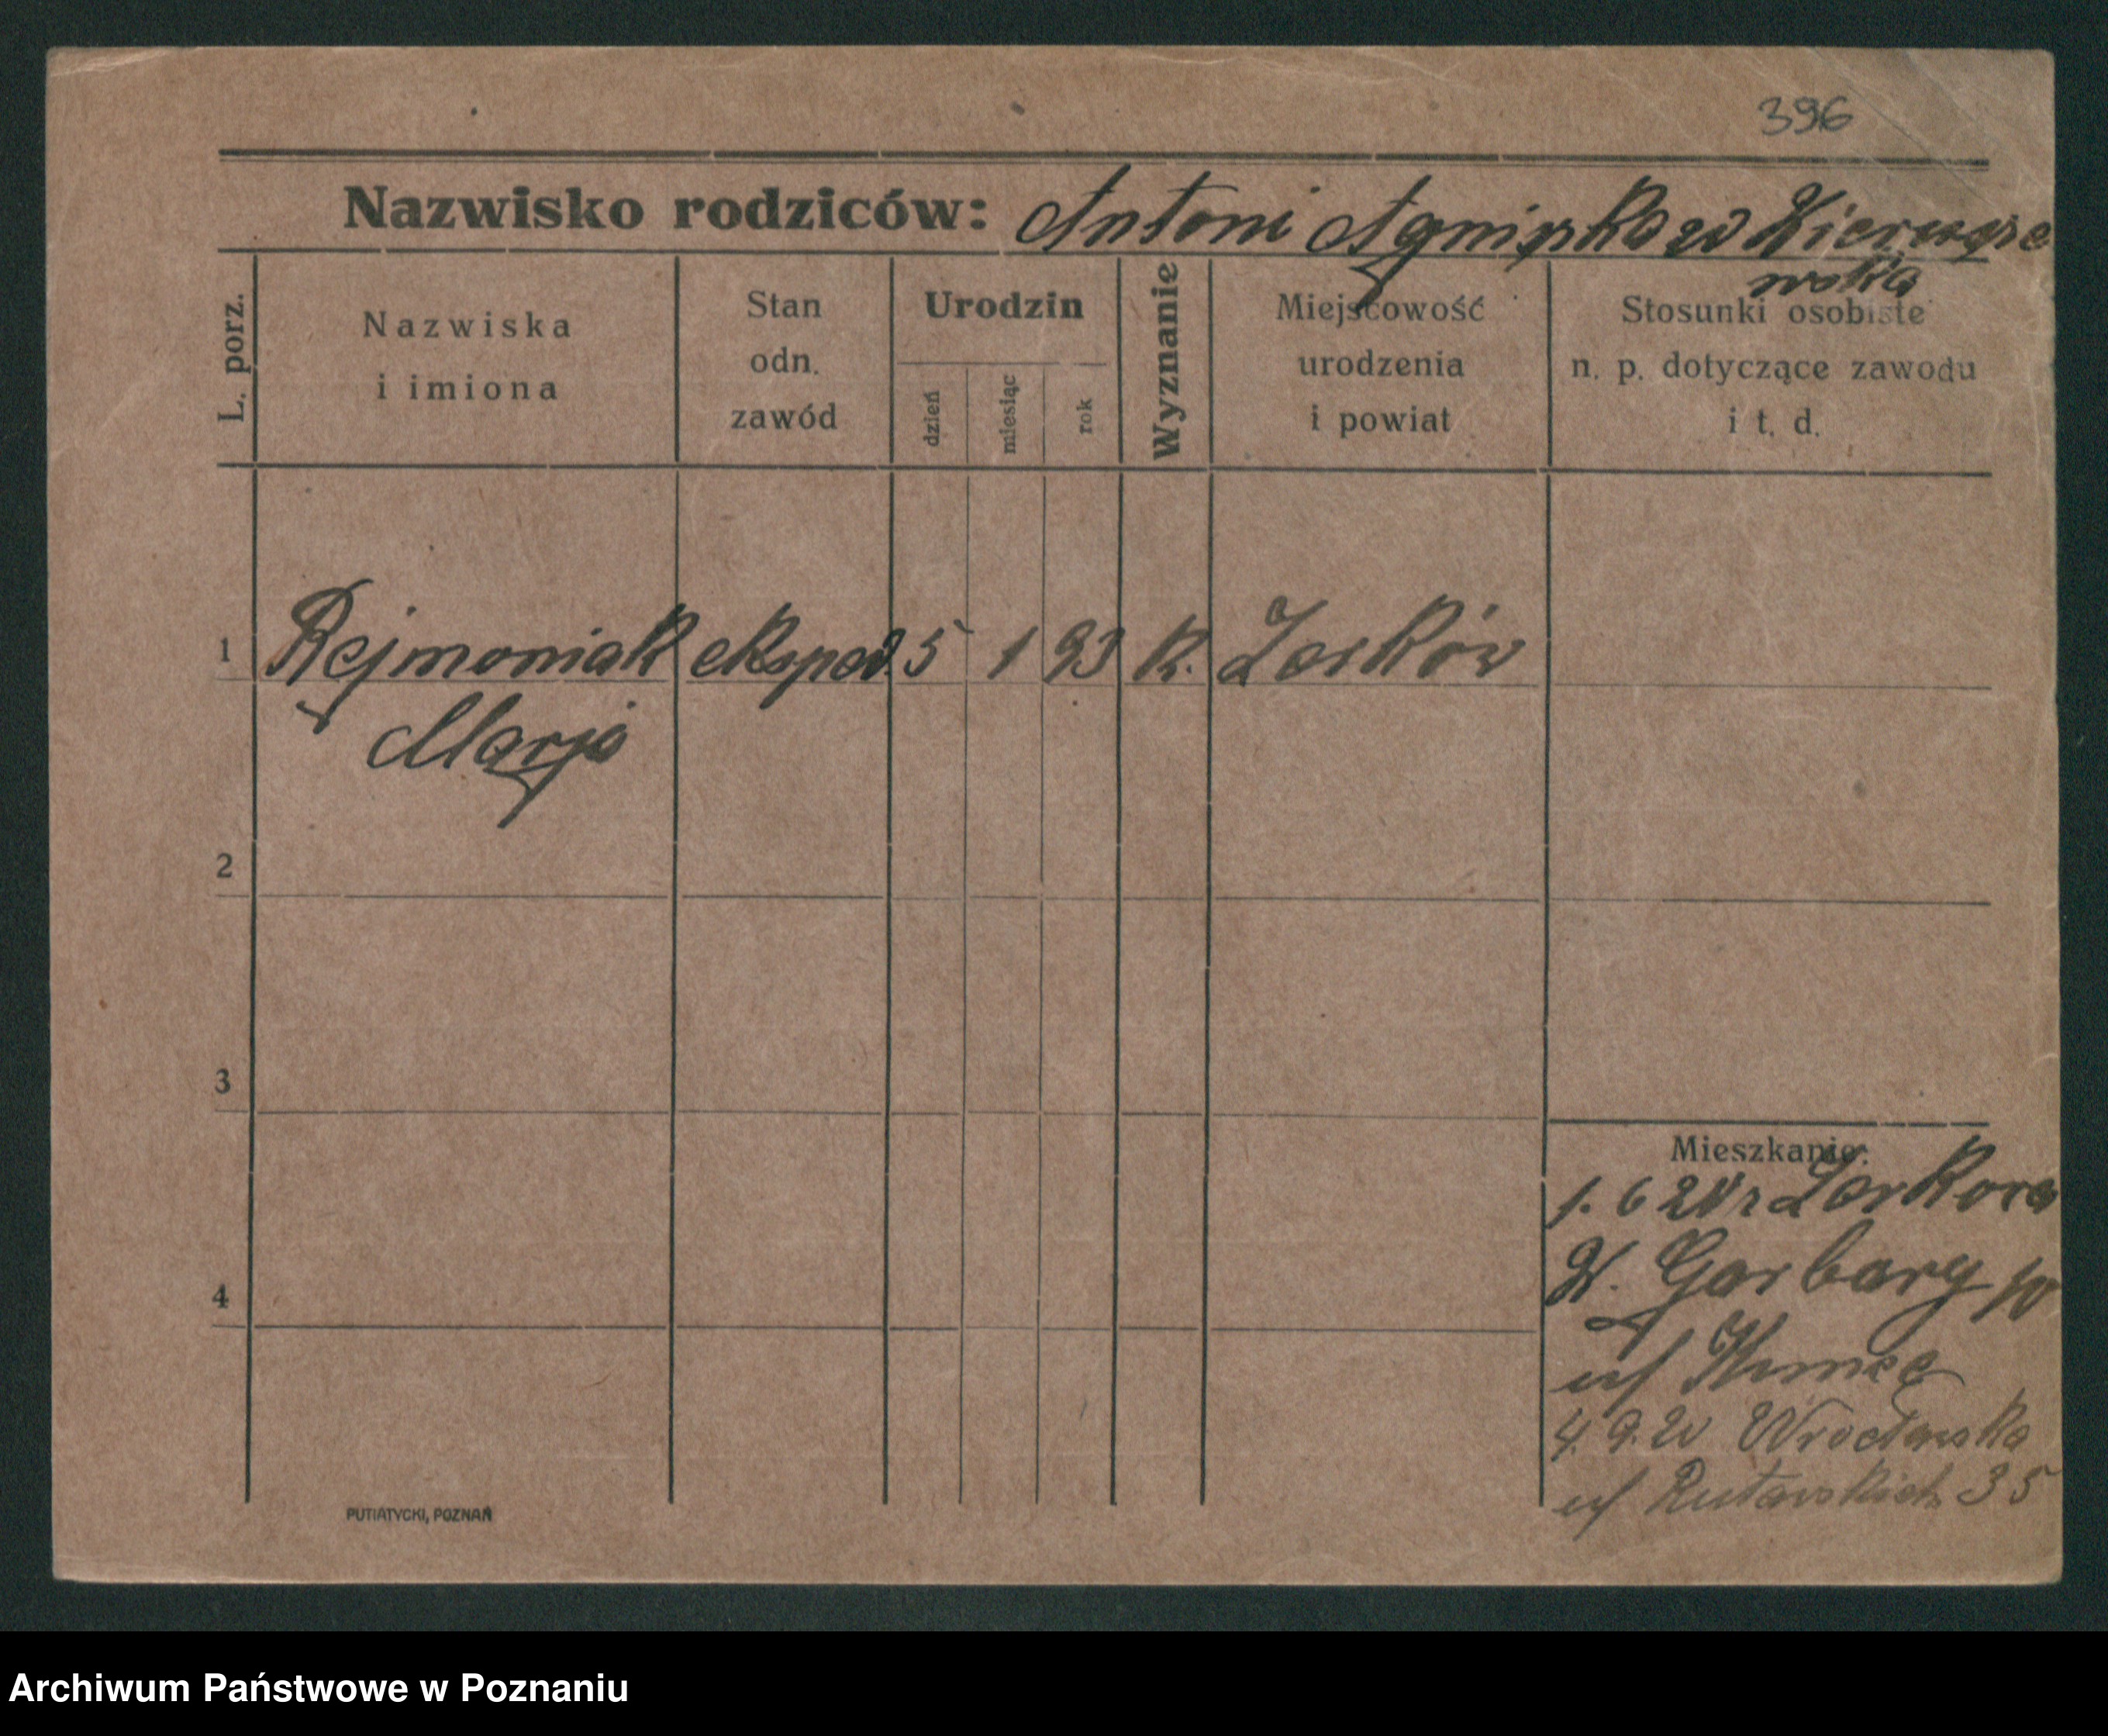 396
Nazwisko rodziców: Antoni Agnieszka
L. porz.
Nazwiska
i imiona
Stan
odn.
zawód
Urodzin
dzień
miesiąc
rok
Wyznanie
Miejscowość
urodzenia
i powiat
Stosunki osobiste
n. p. dotyczące zawodu
i t. d.
1 Rejmoniak eksped. 5 1 93 k. Żerków
Marja
2
3
Mieszkanie:
1. 6 21
Garbary
4
4. 9. 21 Wrocławska
u/ Rutarskich 35
PUTIATYCKI, POZNAŃ
Archiwum Państwowe w Poznaniu